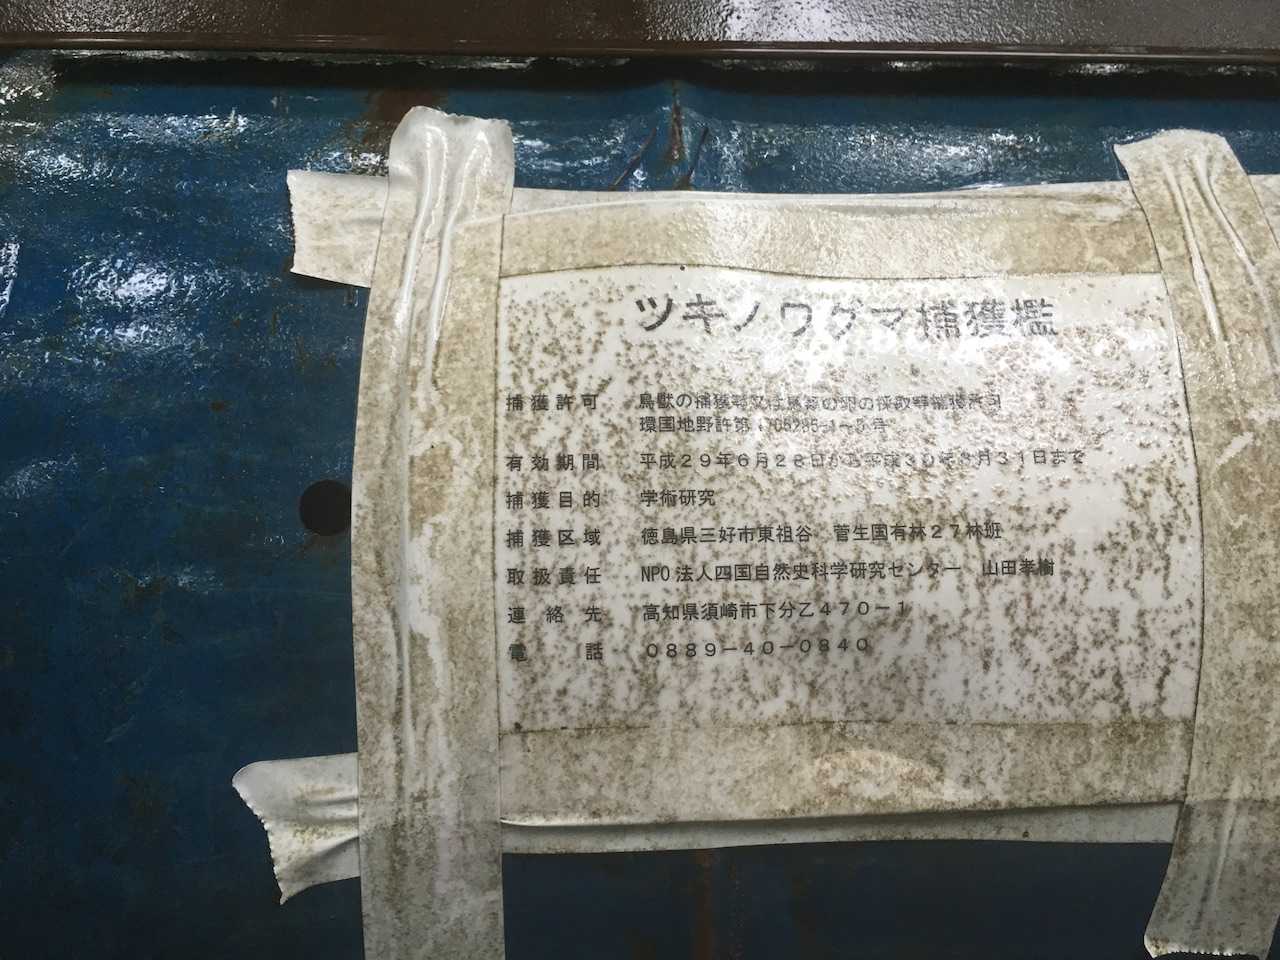 ツキノワグマ捕獲檻
捕獲許可 鳥獣の捕獲等又は鳥類の卵の採取等 許可
環国地野許第1706285-1~5号
有効期間 平成29年6月28日から平成30年3月31日まで
捕獲目的 学術研究
捕獲区域 徳島県三好市東祖谷 菅生国有林27林班
取扱責任 NPO法人四国自然史科学研究センター 山田孝樹
連絡先 高知県須崎市下分乙470-1
電話 0889-40-0840